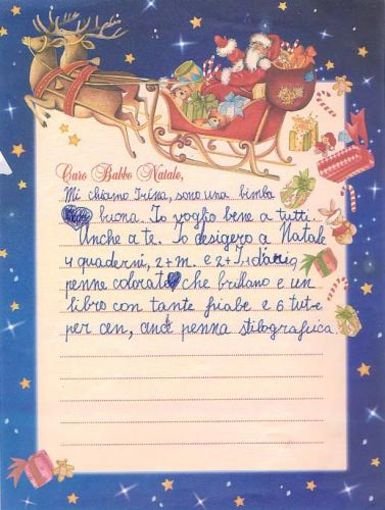 Caro Babbo Natale,
Mi chiamo Irina, sono una bimba
buona. Io voglio bene a tutti.
Anche a te. Io desigero a Natale
4 quaderni, 2+m. e 2+I,1diario,
penne colorate che brillano e un
libro con tante fiabe e 6 tut-e
per cen, penna stilografica